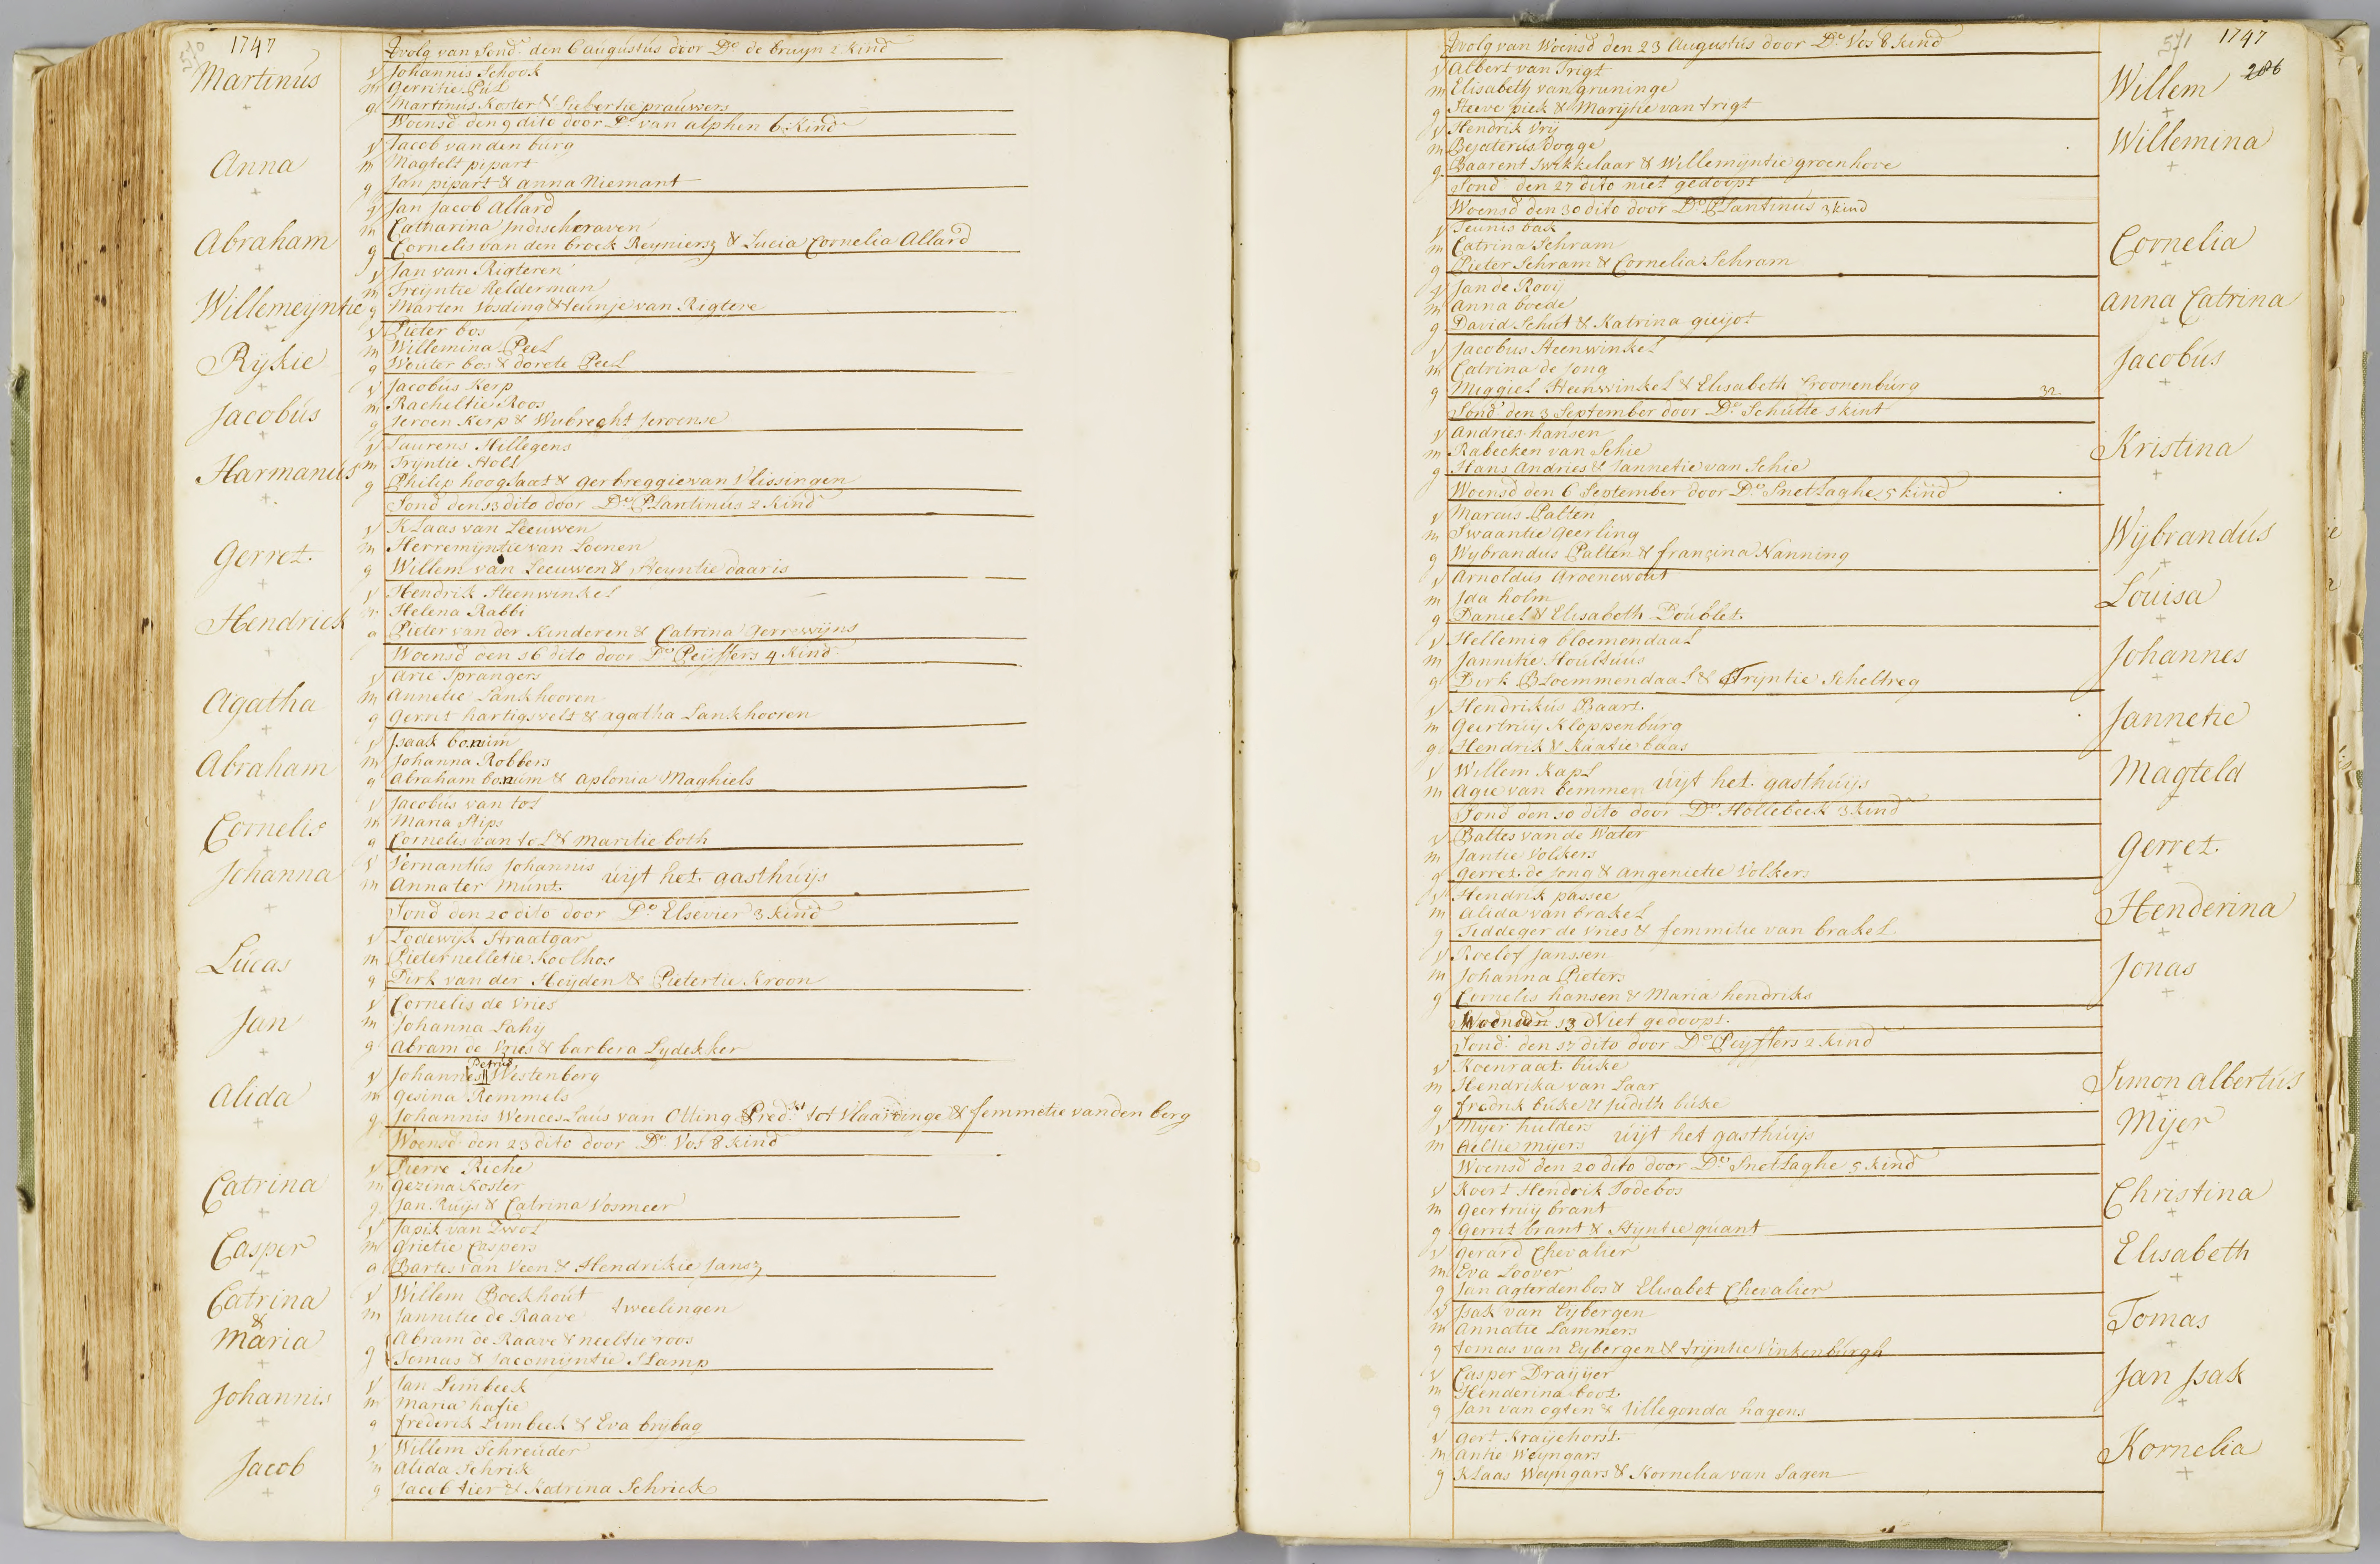 570
1747
vervolg van Sond. den 6 augustus door Do. de bruyn 2 kind
Martinus
v Johannis Schook
m Gerritie Pul
g Martinus Koster & Siebertie prauwers
Woensd den 9 dito door Do. van alphen 6 Kind
Anna
v Jacob van den burg
m Magtelt pipart
g Jan pipart & anna Niemant
Abraham
v Jan Jacob Allard
m Catharina Indischeraven
g Cornelis van den broek Reyniersz & Lucia Cornelia Allard
Willemeijntie
v Jan van Rigteren
m Treijntie helderman
g Marten Vosding & Teunje van Rigtere
Rijkie
v Pieter bos
m Willemina Peel
g Wouter bos & dorete Peel
Jacobus
v Jacobus Kerp
m Racheltie Roos
g Jeroen Kerp & Wubrecht Jeroense
Harmanus
v Laurens Hillegens
m Trijntie Holl
g Philip hooglaat & gerbreggie van Vlissingen
Sond den 13 dito door Do. Plantinus 2 Kind
Gerret
v Klaas van Leeuwen
m Herremijntie van Loenen
g Willem van Leeuwen & Heyntie daaris
Hendrick
v Hendrik Steenwinkel
m Helena Rabbi
g Pieter van der Kinderen & Catrina Gerrewijns
Woensd den 16 dito door Do. Peijffers 4 Kind
Agatha
v Arie Sprangers
m Annetie Lankhooren
g Gerret hartigsvelt & agatha Lankhooren
Abraham
v Isaak bonum
m Johanna Robbers
g Abraham bonum & aplonia Maghiels
Cornelis
v Jacobus van tol
m Maria Stips
g Cornelis van tol & maritie both
Johanna
v Vernantus Johannis
m Anna ter Munt uijt het gasthuijs
Sond den 20 dito door Do. Elsevier 3 kind
Lucas
v Lodewijk Straatgar
m Pieternelletie Koolhos
g Dirk van der Heijden & Pietertie Kroon
Jan
v Cornelis de Vries
m Johanna Lahij
g Abram de Vries & barbera Lydekker
Alida
v Johannes Petrus Westenberg
m Gesina Remmels
g Johannis Wenceslaus van Otting Pred.t tot Vlaardinge & femmetie van den berg
Woensd den 23 dito door Do. Vos 8 kind
Catrina
v Pierre Riche
m Gezina Koster
g Jan Ruijs & Catrina Vosmeer
Casper
v Japik van Zwol
m Grietie Caspers
g Bartes van Veen & Hendrikie Jansz
Catrina & Maria
v Willem Boekhout
m Jannetie de Raave tweelingen
g Abram de Raave & neeltie roos
Tomas & Jacomijntie Slamp
Johannis
v Jan Limbeek
m maria hafie
g frederik Limbeek & Eva brijbag
Jacob
v Willem Schreuder
m Alida Schrik
g Jacob tier & Katrina Schriek
571
1747
286
vervolg van Woensd den 23 Augustus door Do. Vos 8 kind
v Albert van Trigt
m Elisabeth van gruninge
g Steeve piek & Marijtie van trigt
Willem
v Hendrik Vrij
m Bejaterus dogge
g Baarent Swikkelaar & Willemijntie groenhove
Willemina
Sond den 27 dito niet gedoopt
Woensd den 30 dito door Do. Plantinus 3 kind
v Teunis bak
m Catrina Schram
g Pieter Schram & Cornelia Schram
Cornelia
v Jan de Rooij
m anna boede
g David Schut & Katrina guijot
anna Catrina
v Jacobus Steenwinkel
m Catrina de Jong
g Miggiel Steenwinkel & Elisabeth Croonenburg
32
Jacobus
Sond den 3 September door Do. Schutte 1 kint
v Andries hansen
m Rabecken van Schie
g Hans Andries & Jannetie van Schie
Kristina
Woensd den 6 September door Do. Snetlaghe 5 kind
v Marcus Palten
m Swaantie Geerling
g Wybrandus Palten & francina Nanning
Wijbrandus
v Arnoldus Groenewout
m Ida holm
g Daniel & Elisabeth Doublet
Louisa
v Hellemig bloemendaal
m Jannike Houltuus
g Dirk Bloemmendaal & Trijntie Scheltreg
Johannes
v Hendrikus Baart
m Geertruy Kloppenburg
g Hendrik & Kaatie baas
Jannetie
v Willem Kapl
m Agie van bemmen uijt het gasthuijs
Magteld
Sond den 10 dito door Do. Hollebeek 3 kind
v Battes van de Water
m Jantie Volkers
g Gerret de Jong & Angenietie Volkers
Gerret
v Hendrik passee
m Alida van brakel
g Tiddeger de Vries & femmitie van brakel
Henderina
v Roelof Janssen
m Johanna Pieters
g Cornelis hansen & Maria hendriks
Jonas
Woensd den 13 d Niet gedoopt
Sond den 17 dito door Do. Peijffers 2 kind
v Koenraat buke
m Hendrika van Laar
g fredrik buke & Judith buke
Simon Albertus
v Mijer hulders
m Aeltie mijers uijt het gasthuijs
Mijer
Woensd den 20 dito door Do. Snetlaghe 5 kind
v Koert Hendrik Todebos
m Geertruij brant
g Gerrit brant & Stijntie quant
Christina
v Gerard Chevalier
m Eva Loover
g Jan agterdenbos & Elisabet Chevalier
Elisabeth
v Isak van Eybergen
m Annatie Lammers
g tomas van Eybergen & trijntie Vinkenburgh
Tomas
v Casper Draijjer
m Henderina boot
g Jan van ogten & Hillegonda hagens
Jan Isak
v Gert Kraijehorst
m Antie Weijngars
g Klaas Weijngars & Kornelia van Sagen
Kornelia